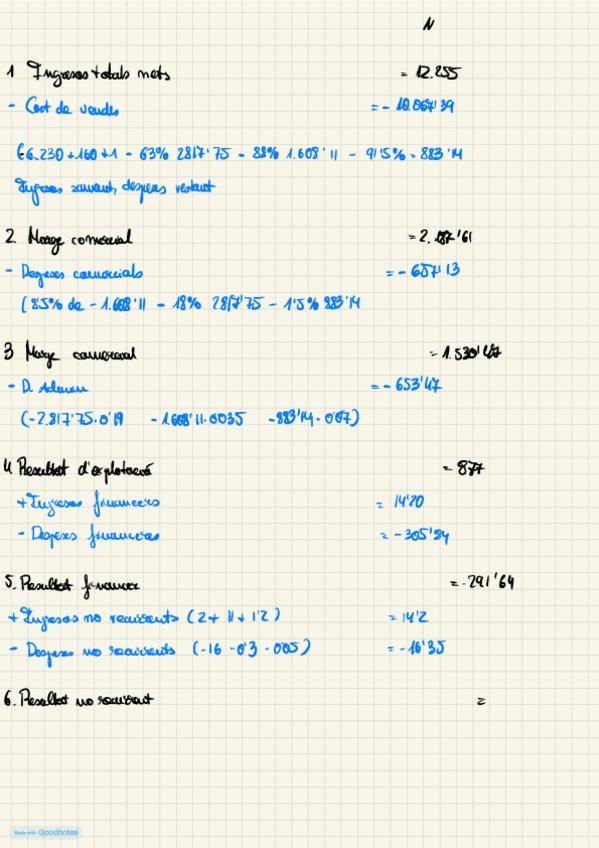 N
1 Ingresos totals nets = 12.255
- Cost de vendes = - 10.067'39
(6.230 + 160 + 1 - 63% 2817'75 - 88% 1.608'11 - 91'5% · 883'14
Ingresos sumant, despeses restant
2. Marge comercial = 2.187'61
- Despeses comercials = - 657'13
(8'5% de - 1.608'11 - 18% 2817'75 - 1'5% 883'14
3 Marge comercial = 1.530'48
- D. Admon = - 653'47
(-2.817'75·0'19 - 1608'11·0'035 - 883'14·0'07)
4. Resultat d'explotació = 877
+ Ingresos financers = 14'20
- Despeses financeres = - 305'84
5. Resultat financer = - 291'64
+ Ingresos no recurrents (2 + 11 + 1'2) = 14'2
- Despeses no recurrents (-16 - 0'3 - 0'05) = - 16'35
6. Resultat no recurrent =
Made with Goodnotes